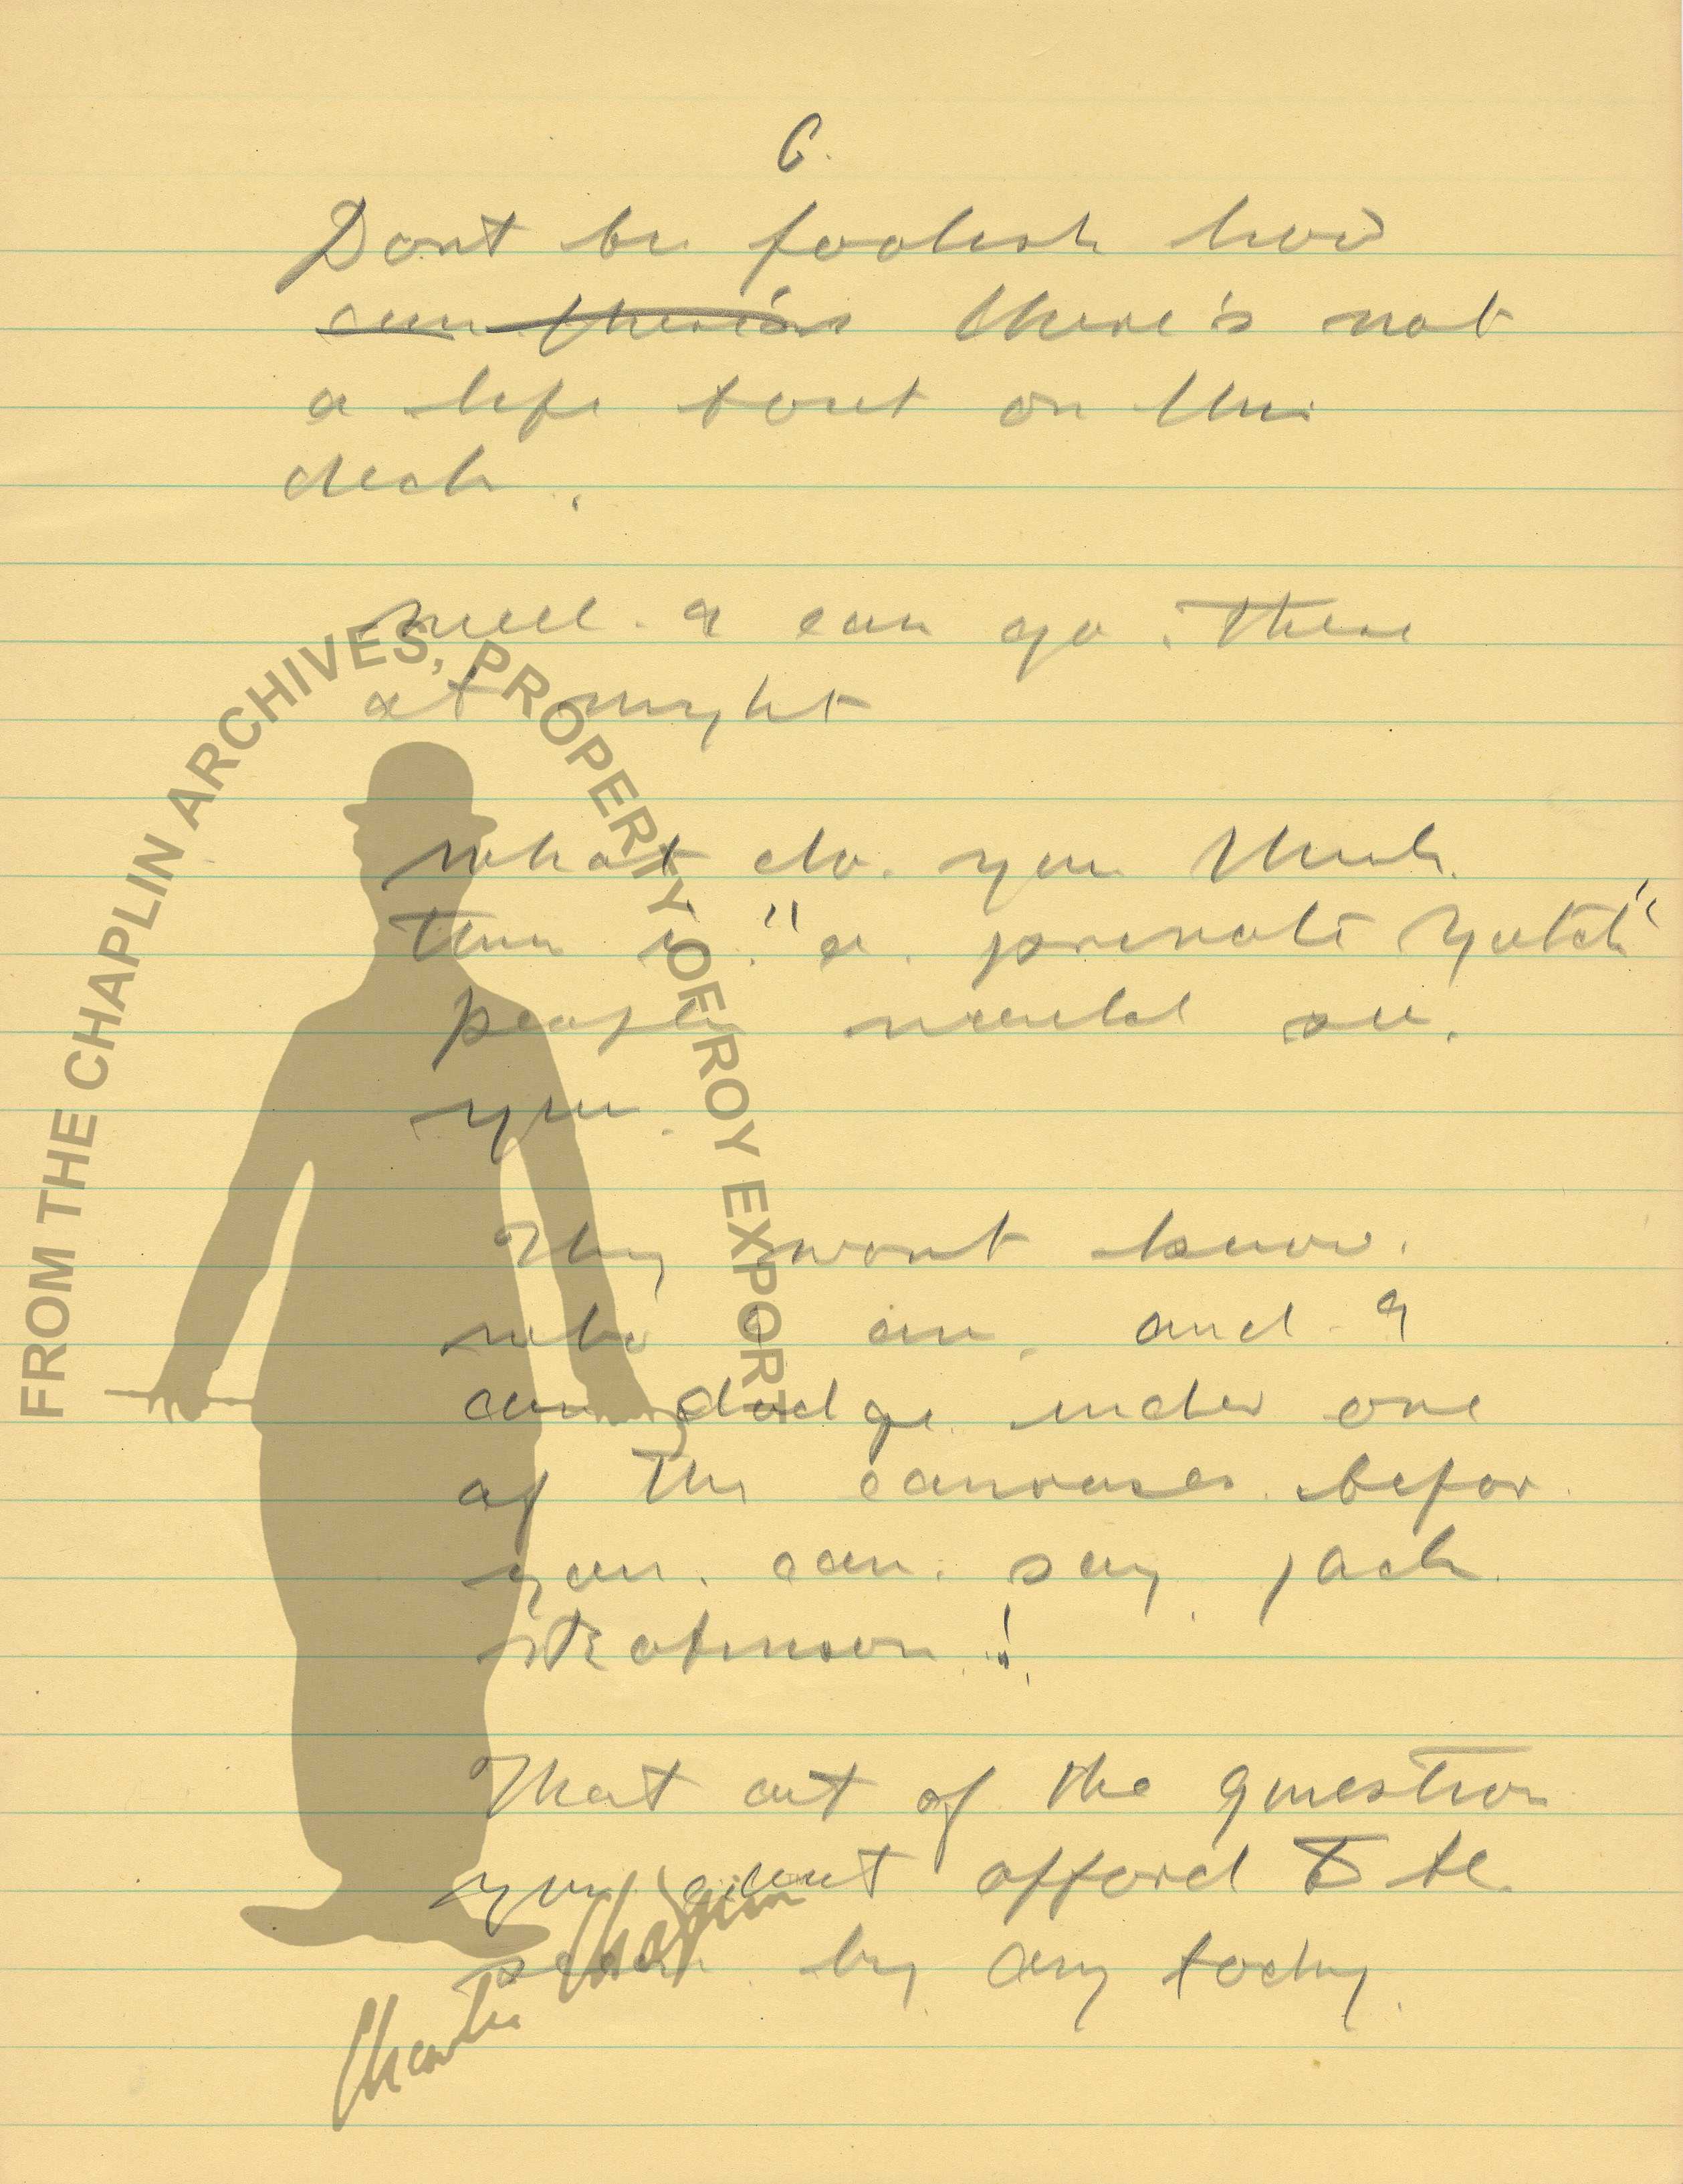 6.
Dont be foolish how
can there's there's not
a life bout on this
deck.
well. I can go. there
at night
what do. you think
this is. "a. private Yatch"
people would see.
you.
They wont know.
who I am and I
can dodge under one
of the canvases befor
you. can. say Jack
Robinson!
That out of the question
you cant afford to be
seen by any body.
FROM THE CHAPLIN ARCHIVES, PROPERTY OF ROY EXPORT
Charlie Chaplin